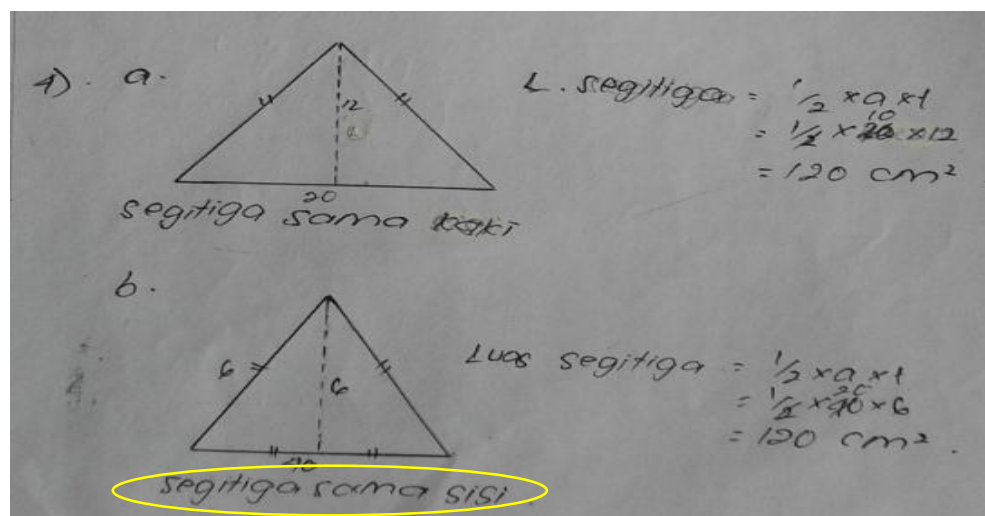 4). a.
12
20
segitiga sama kaki
L. segitiga = 1/2 x a x t
= 1/2 x 20 10 x 12
= 120 cm²
b.
6
6
40
segitiga sama sisi
Luas segitiga = 1/2 x a x t
= 1/2 x 40 20 x 6
= 120 cm².